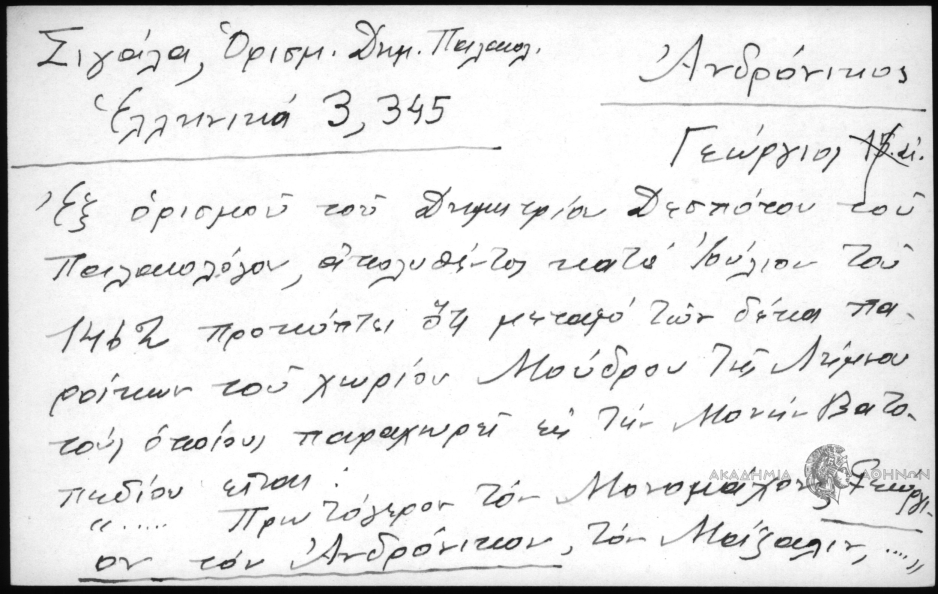 Σιγάλα, Ὁρισμ. Δημ. Παλαιολ.
Ἑλληνικά 3, 345
Ἀνδρόνικος
Γεώργιος 15 αἰ.
Ἐξ ὁρισμοῦ τοῦ Δημητρίου Δεσπότου τοῦ
Παλαιολόγου, ἀπολυθέντος κατά Ἰούλιον τοῦ
1462 προκύπτει ὅτι μεταξύ τῶν δέκα πα-
ροίκων τοῦ χωρίου Μούδρου τῆς Λήμνου
τούς ὁποίους παραχωρεῖ εἰς τήν Μονήν Βατο-
πεδίου εἶναι:
ΑΚΑΔΗΜΙΑ ΑΘΗΝΩΝ
"..... Πρωτόγερον τόν Μονομάχον, Γεώργι-
ον τόν Ἀνδρόνικον, τόν ....."